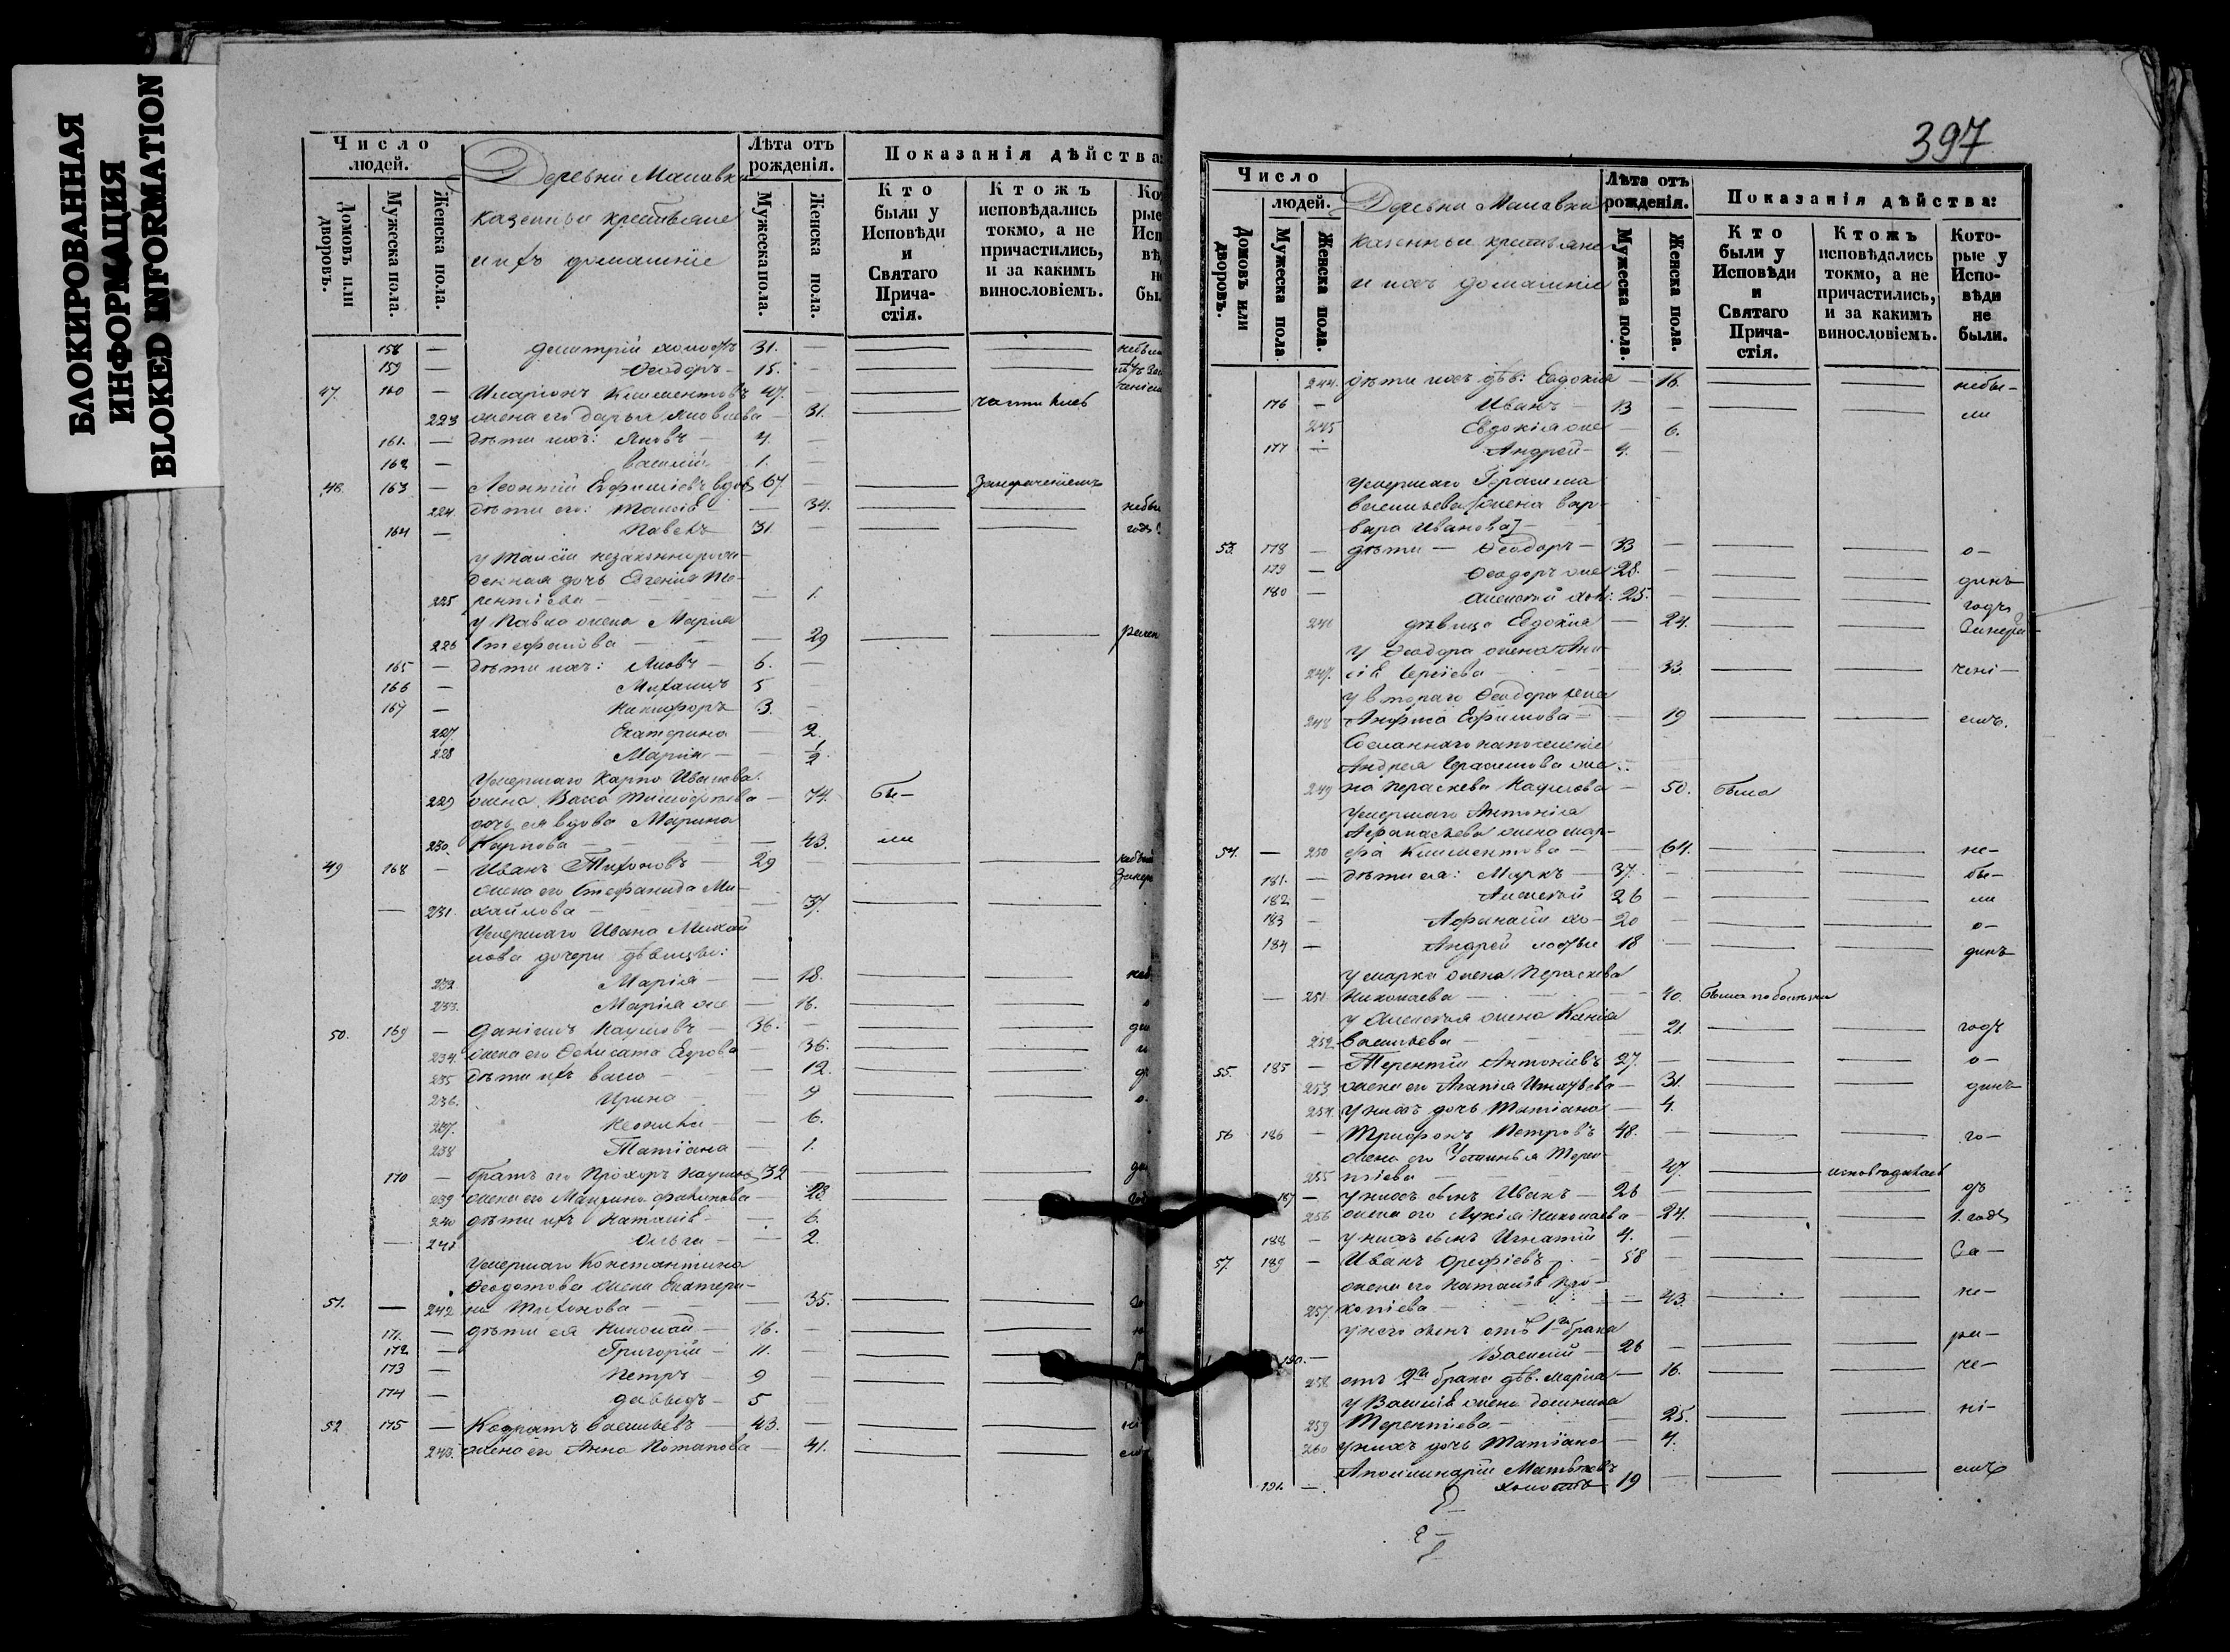 БЛОКИРОВАННАЯ
ИНФОРМАЦИЯ
BLOKED INFORMATION
Число
людей.
Домовъ или дворовъ.
Мужеска пола.
Женска пола.
казенныи крестьяне
и ихъ домашніе
Лѣта отъ
рожденія.
Мужеска пола.
Женска пола.
Показанія дѣйства
Кто
были у
Исповѣди
и
Святаго
Прича-
стія.
Ктожъ
исповѣдались
токмо, а не
причастились,
и за какимъ
винословіемъ.
158 — Димитрій холостъ 31. —
159 — Ѳеодоръ — 15. —
47. 160 — Иларіонъ Климентовъ 47. —
223 жена его Дарья Яковлева — 31.
161. — дѣти ихъ: Яковъ — 4. —
162 — Василій 1. —
48. 163 — Леонтій Евфиміевъ вдов 67. —
224. дѣти его: Таисіѣ — 34.
164 — Павелъ 31. —
у Таисіи незаконнорож-
денная дочь Евгенія Те-
225 рентіева — 1.
у Павла жена Марія
226 Стефанова — 29
165 — дѣти ихъ: Яковъ — 6. —
166 — Михаилъ 5
167 — Никифоръ 3. —
227. Екатерина — 2.
228 Марія — 1/2
Умершаго Карпа Иванова
229 жена Васса Тимофѣева — 74. бы-
дочь ея вдова Марина
230. Карпова — 43. ли
49 168 — Иванъ Тихоновъ — 29
жена его Стефанида Ми-
— 231. хайлова — 37.
Умершаго Ивана Михай
лова дочери дѣвицы:
232 Марія — 18.
233. Марія же — 16.
50. 169 — Даніилъ Наумовъ — 36. —
234. жена его Ѳеклиста Егорова 36.
235 дѣти ихъ Васса — 12.
236. Ирина — 9
237. — 6.
238 Татіана — 1.
170 — братъ его Прохоръ Наумовъ 32 —
239 жена его — 28.
240 дѣти ихъ Наталіѣ — 6.
— 241 Ольга — 2.
Умершаго Константина
Ѳеодотова жена Екатери-
51. — 242 на Тихонова — 35.
171. — дѣти ея Николай — 16. —
172 — Григорій — 11. —
173 — Петръ — 9
174 — Давыдъ — 5
52 175 — Кодратъ Васильевъ — 43. —
243. жена его Анна Потапова — 41.
397
Число
людей.
Домовъ или дворовъ.
Мужеска пола
Женска пола.
казенныи крестьяне
и ихъ домашніе
Лѣта отъ
рожденія.
Мужеска пола.
Женска пола.
Показанія дѣйства:
Кто
были у
Исповѣди
и
Святаго
Прича-
стія.
Ктожъ
исповѣдались
токмо, а не
причастились,
и за какимъ
винословіемъ.
Кото-
рые у
Испо-
вѣди
не
были.
244. дѣти ихъ дѣв: Евдокія — 16. небы-
176 — Иванъ — 13 — ли
245 Евдокія же — 6.
177 — Андрей — 4. —
Умершаго Герасима
Васильева [жена Вар-
вара Иванова]
53. 178 — дѣти — Ѳеодоръ — 33 — о-
179 — Ѳеодоръ же 28. — динъ
180 — Алексѣй хол: 25. — годъ
246 дѣвица Евдокія — 24.
у Ѳеодора жена Ани-
247. сіѣ Сергіева — 33. чені-
у втораго Ѳеодора жена
248 Анфиса Ефимова — 19 емъ.
Сосланнаго на поселеніе
Андрея Герасимова же-
249 на Пераскева Наумова — 50. была
Умершаго Антонія
Афанасьева жена Мар-
54. — 250 фа Климентова — 64. не-
181. — дѣти ея: Маркъ — 37. — бы-
182 — Алексѣй 26 — ли
183 — Афанасій хо- 20 — о-
184 — Андрей лостые 18 — динъ
у Марка жена Пераскева
— 251 Николаева — 40.
у Алексѣя жена Ксенія
252 Васильева — 21. годъ
55. 185 — Терентій Антоніевъ 27. — о-
253 жена его Агапія Игнатьева — 31. динъ
254. у нихъ дочь Татіана — 4.
56 186 — Трифонъ Петровъ 48. — го-
жена его Устинья Терен-
255 тіева — 47.
187 — у нихъ сынъ Иванъ — 26 — дъ
256 жена его Лукія Николаева — 24. 1. годъ
188 — у нихъ сынъ Игнатій 4. —
57. 189 — Иванъ Орефіевъ — 58 — За-
жена его Наталіѣ Про-
257. копіева — 43. не-
у него сынъ отъ 1го брака
190. — Василій — 26 — ра-
258. отъ 2го брака дѣв. Марія — 16. че-
у Василіѣ жена Домникія
259 Терентіева — 25. ні-
260 у нихъ дочь Татіана — 4.
Аполлинарій Матвѣевъ
191. — холостъ 19 — емъ